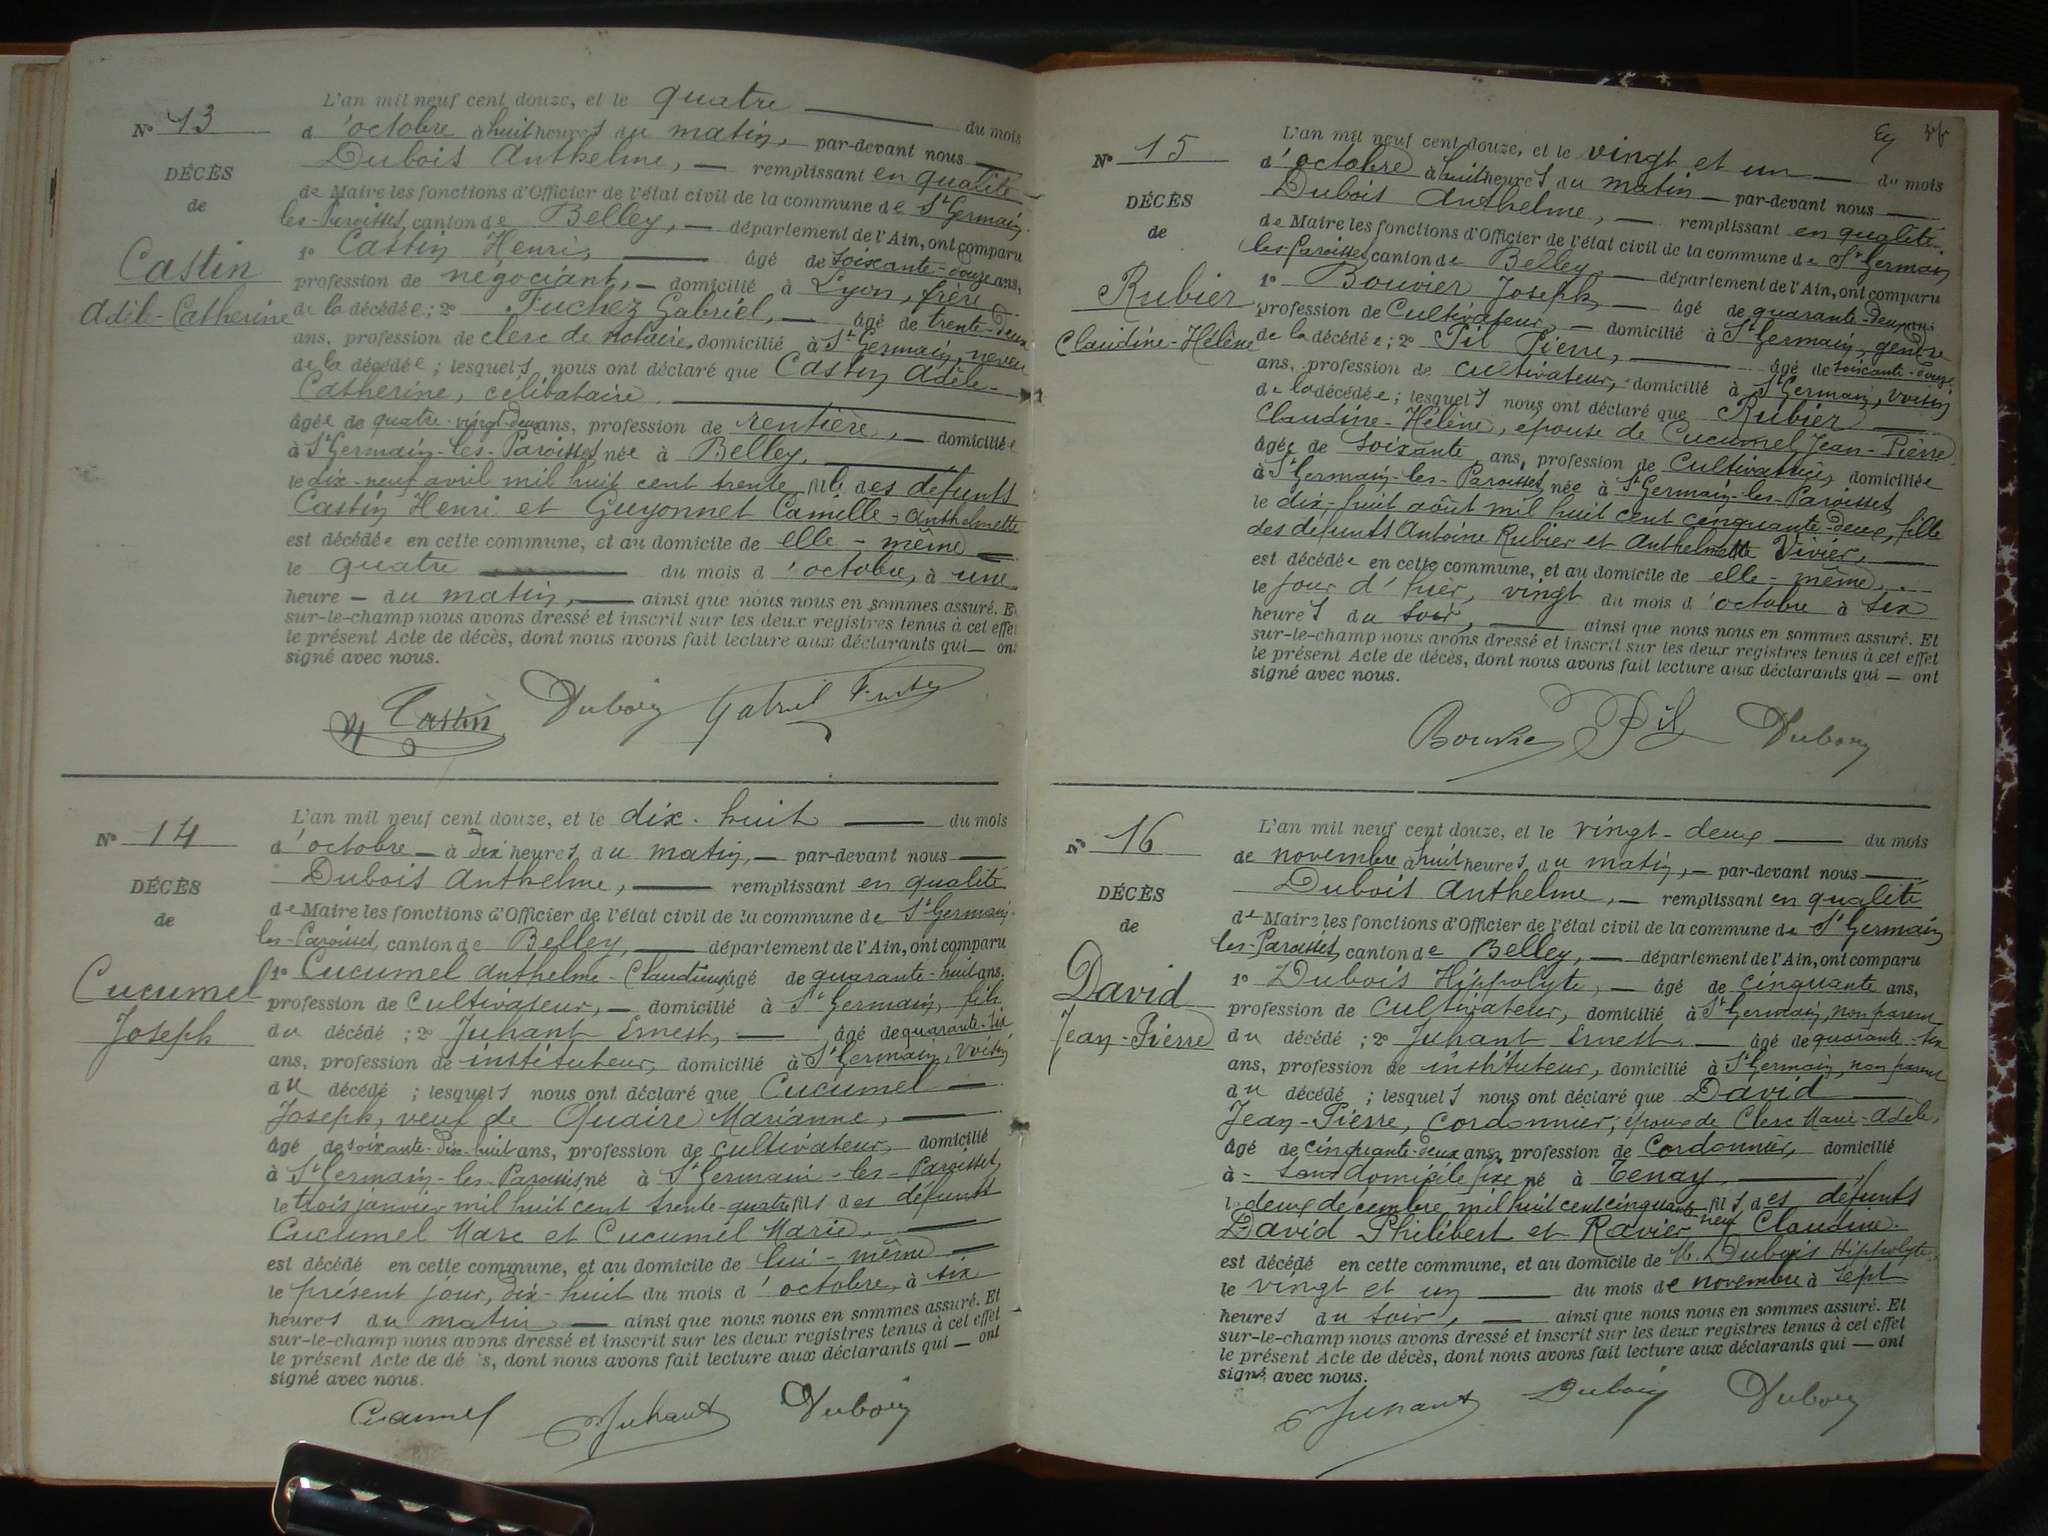 N° 13
DÉCÈS
de
Castin
Adèle-Catherine
L'an mil neuf cent douze, et le quatre — du mois
d'octobre à huit heures du matin, — par-devant nous —
Dubois Anthelme, — remplissant en qualité
de Maire les fonctions d'Officier de l'état civil de la commune de St Germain-
les-Paroisses, canton de Belley, — département de l'Ain, ont comparu
1° Castin Henri, — âgé de soixante-douze ans,
profession de négociant, — domicilié à Lyon, frère
de la décédée; 2° Fuchez Gabriel, — âgé de trente-deux
ans, profession de clerc de notaire, domicilié à St Germain, neveu
de la décédée; lesquels nous ont déclaré que Castin Adèle-
Catherine, célibataire. —
âgée de quatre-vingt-deux ans, profession de rentière, — domiciliée
à St Germain-les-Paroisses, née à Belley, —
le dix-neuf avril mil huit cent trente, fille des défunts
Castin Henri et Guyonnet Camille-Anthelmette
est décédée en cette commune, et au domicile de elle-même —
le quatre — du mois d'octobre, à une
heure — du matin, — ainsi que nous nous en sommes assuré. E
sur-le-champ nous avons dressé et inscrit sur les deux registres tenus à cet effet
le présent Acte de décès, dont nous avons fait lecture aux déclarants qui — ont
signé avec nous.
Castin Dubois Gabriel
N° 14
DÉCÈS
de
Cucumel
Joseph
L'an mil neuf cent douze, et le dix-huit — du mois
d'octobre — à dix heures du matin, — par-devant nous —
Dubois Anthelme, — remplissant en qualité
de Maire les fonctions d'Officier de l'état civil de la commune de St Germain-
les-Paroisses, canton de Belley, — département de l'Ain, ont comparu
1° Cucumel Anthelme-Claudius, âgé de quarante-huit ans,
profession de cultivateur, — domicilié à St Germain, fils
du décédé; 2° Juhant Ernest, — âgé de quarante-six
ans, profession de instituteur, domicilié à St Germain, voisin
du décédé; lesquels nous ont déclaré que Cucumel —
Joseph, veuf de Quaire Marianne, —
âgé de soixante-dix-huit ans, profession de cultivateur, domicilié
à St Germain-les-Paroisses né à St Germain-les-Paroisses
le trois janvier mil huit cent trente-quatre fils des défunts
Cucumel Marc et Cucumel Marie, —
est décédé en cette commune, et au domicile de lui-même —
le présent jour, dix-huit du mois d'octobre, à six
heures du matin — ainsi que nous nous en sommes assuré. Et
sur-le-champ nous avons dressé et inscrit sur les deux registres tenus à cet effet
le présent Acte de dé s, dont nous avons fait lecture aux déclarants qui — ont
signé avec nous.
Cucumel Juhant Dubois
N° 15
DÉCÈS
de
Rubier
Claudine-Hélène
L'an mil neuf cent douze, et le vingt et un — du mois
d'octobre à huit heures du matin — par-devant nous —
Dubois Anthelme, — remplissant en qualité
de Maire les fonctions d'Officier de l'état civil de la commune de St Germain
les Paroisses, canton de Belley, — département de l'Ain, ont comparu
1° Bouvier Joseph, — âgé de quarante-deux ans
profession de Cultivateur, — domicilié à St Germain, gendre
de la décédée; 2° Pil Pierre, — âgé de soixante-douze
ans, profession de cultivateur, domicilié à St Germain, voisin
de la décédée; lesquels nous ont déclaré que Rubier —
Claudine-Hélène, épouse de Cucumel Jean-Pierre
âgée de soixante ans, profession de Cultivatrice, domiciliée
à St Germain-les-Paroisses, née à St Germain-les-Paroisses
le dix-huit août mil huit cent cinquante-deux, fille
des défunts Antoine Rubier et Anthelmette Vivier, —
est décédée en cette commune, et au domicile de elle-même, —
le jour d'hier, vingt du mois d'octobre à six
heures du soir, — ainsi que nous nous en sommes assuré. Et
sur-le-champ nous avons dressé et inscrit sur les deux registres tenus à cet effet
le présent Acte de décès, dont nous avons fait lecture aux déclarants qui — ont
signé avec nous.
Bouvier Pil Dubois
N° 16
DÉCÈS
de
David
Jean-Pierre
L'an mil neuf cent douze, et le vingt-deux — du mois
de novembre à huit heures du matin, — par-devant nous —
Dubois Anthelme, — remplissant en qualité
de Maire les fonctions d'Officier de l'état civil de la commune de St Germain
les-Paroisses, canton de Belley, — département de l'Ain, ont comparu
1° Dubois Hippolyte, — âgé de cinquante ans,
profession de cultivateur, domicilié à St Germain, non parent
du décédé; 2° Juhant Ernest, — âgé de quarante-six
ans, profession de instituteur, domicilié à St Germain, non parent
du décédé; lesquels nous ont déclaré que David —
Jean-Pierre, cordonnier, époux de Clerc Marie-Adèle,
âgé de cinquante-deux ans, profession de Cordonnier, domicilié
à - sans domicile fixe né à Tenay, —
le deux décembre mil huit cent cinquante neuf fils des défunts
David Philibert et Ravier Claudine.
est décédé en cette commune, et au domicile de M. Dubois Hippolyte
le vingt et un — du mois de novembre à sept
heures du soir, — ainsi que nous nous en sommes assuré. Et
sur-le-champ nous avons dressé et inscrit sur les deux registres tenus à cet effet
le présent Acte de décès, dont nous avons fait lecture aux déclarants qui — ont
signé avec nous.
Juhant Dubois Dubois